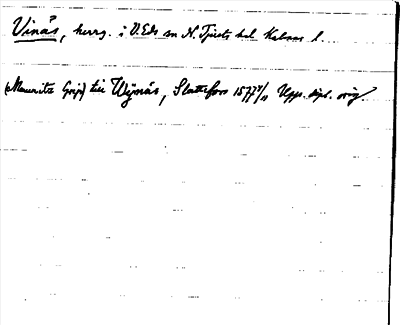 Vinås, herrg. i V. Eds sn N. Tjusts hd. Kalmar l.
(Mauritz Grip) till Wijnäs, Slattefors 1577 Upps. dipl. orig.